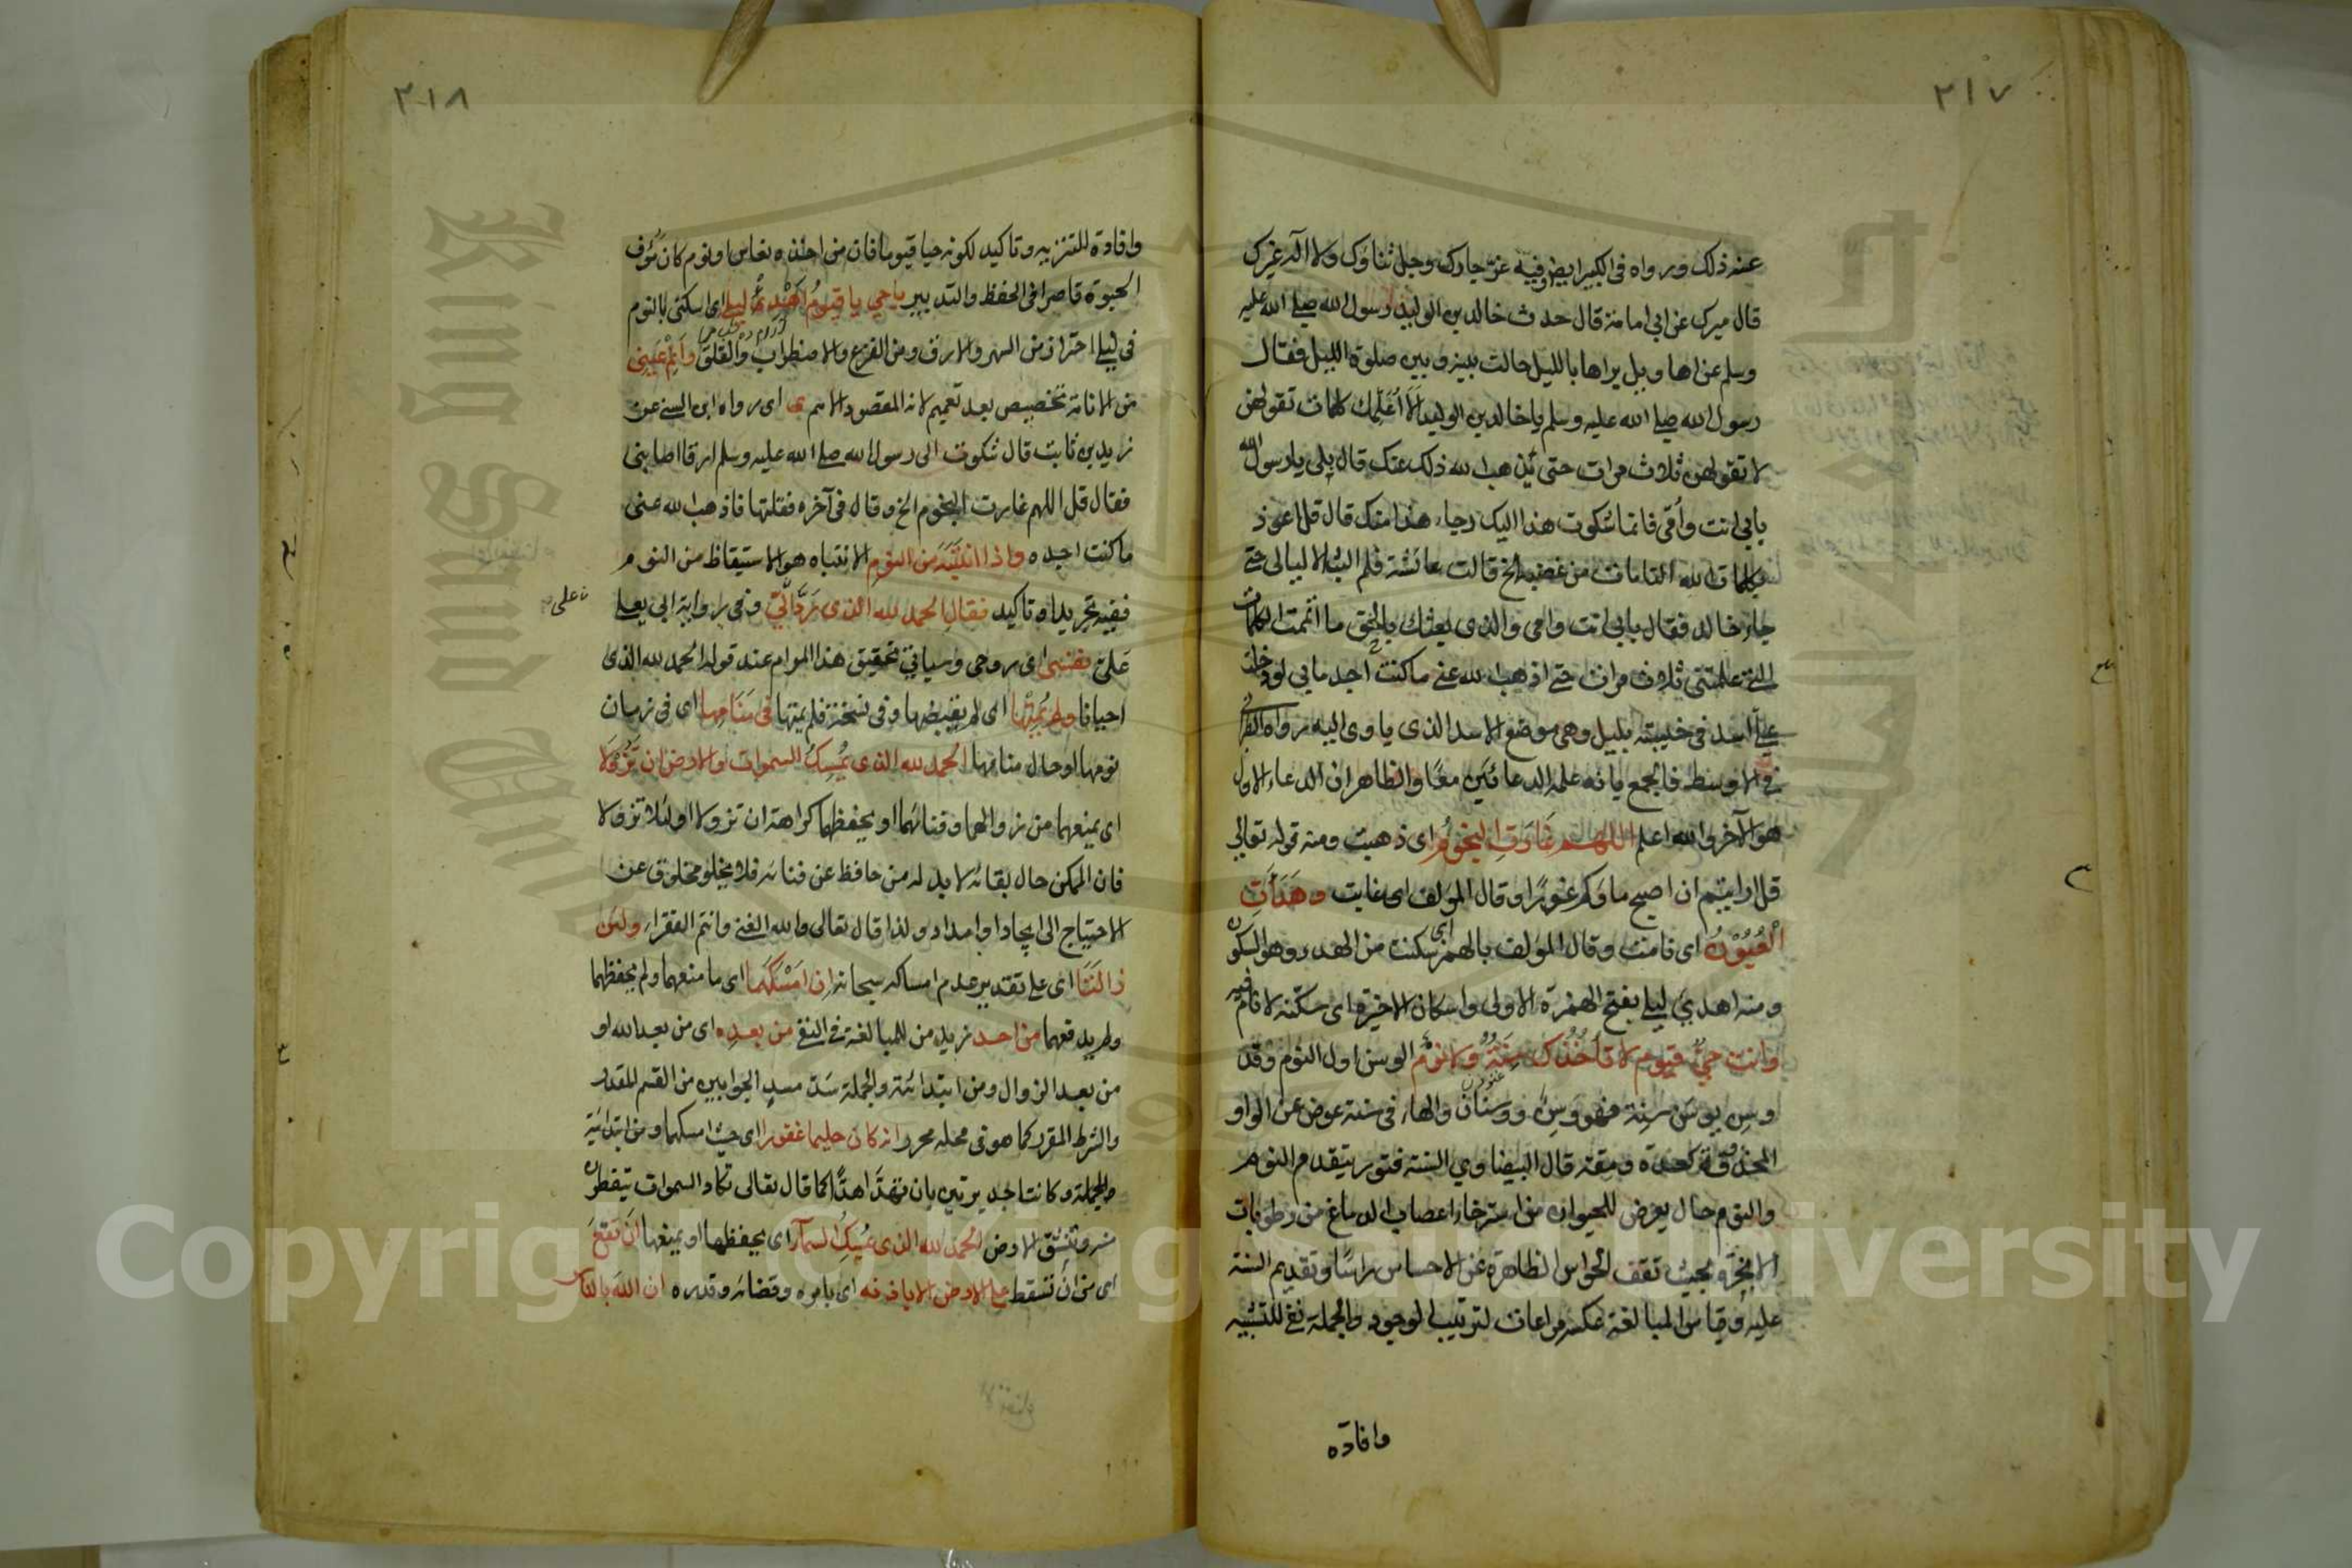 ٢١٧
عنه ذلك ورواه في الكبير ايضا وفيه عز جارك وجل ثناؤك ولا اله غيرك
قال ميرك عن ابي امامة قال حدث خالد بن الوليد رسول الله صلى الله عليه
وسلم عن اهاويل يراها بالليل حالت بينه وبين صلوة الليل فقال
رسول الله صلى الله عليه وسلم يا خالد بن الوليد الا اعلمك كلمات تقولهن
لا تقولهن ثلاث مرات حتى يذهب الله ذلك عنك قال بلى يا رسول الله
بابي انت وأمي فانما شكوت هذا اليك رجاء هذا منك قال قل اعوذ
بكلمات الله التامات من غضبه الخ قالت عائشة فلم البث الا ليالي حتى
جاء خالد فقال بابي انت وامي والذي بعثك بالحق ما اتممت الكلمات
التي علمتني ثلاث مرات حتى اذهب الله عني ما كنت اجد ما بي لو دخلت
على اسد في خيبته بليل وهي موضع الاسد الذي ياوى اليه رواه الطبراني
في الاوسط فالجمع بانه علمه الدعائين معًا والظاهر ان الدعاء الاول
هو الآخر والله اعلم اللهم غارت النجوم اي ذهبت ومنه قوله تعالى
قل ارايتم ان اصبح ماؤكم غورًا وقال المؤلف اي غابت وهدأت
العيون اي نامت وقال المؤلف بالهمز اي سكنت من الهدء وهو السكون
ومنه اهدئ ليلي بفتح الهمزة الاولى واسكان الاخيرة اي سكنه لانام فيه
وانت حي قيوم لا تأخذك سنة ولا نوم الوسن اول النوم وقد
وسن يوسن سنة فهو وسن ووسنان والهاء في سنة عوض عن الواو
المحذوفة كعدة ومقة قال البيضاوي السنة فتور يتقدم النوم
والنوم حال يعرض للحيوان من استرخاء اعصاب الدماغ من رطوبات
الابخرة بحيث تقف الحواس الظاهرة عن الاحساس راسًا وتقديم السنة
عليه وقياس المبالغة عكسه مراعات لترتيب الوجود والجملة نفي للتشبيه
وافادة
٢١٨
وافادة للتنزيه وتاكيد لكونه حيا قيوما فان من اخذه نعاس او نوم كان مؤف
الحيوة قاصرا في الحفظ والتدبير يا حي يا قيوم اهدئ ليلي اي اسكني بالنوم
في ليلي احتراز من السهر والارق ومن الفزع والاضطراب والقلق وانم عيني
من الانامة تخصيص بعد تعميم لانه المقصود الاهم ى اي رواه ابن السني عن
زيد بن ثابت قال شكوت الى رسول الله صلى الله عليه وسلم ارقا اصابني
فقال قل اللهم غارت النجوم الخ وقال في آخره فقلتها فاذهب الله عني
ما كنت اجده واذا انتبه من النوم الانتباه هو الاستيقاظ من النوم
ففيه تجريد او تاكيد فقال الحمد لله الذي رد الي وفي رواية ابي يعلى
علي نفسي اي روحي وسياتي تحقيق هذا المرام عند قوله الحمد لله الذي
احيانا ولم يمتها اي لم يقبضها وفي نسخة فلم يمتها في منامها اي في زمان
نومها او حال منامها الحمد لله الذي يمسك السموات والارض ان تزولا
اي يمنعهما من زوالهما وفنائهما او يحفظهما كراهة ان تزولا او لئلا تزولا
فان الممكن حال بقائه لا بد له من حافظ عن فنائه فلا يخلو مخلوق عن
الاحتياج الى ايجاد او امداد ولذا قال تعالى والله الغني وانتم الفقراء ولئن
زالتا اي على تقدير عدم امساكه سبحانه ان امسكهما اي ما منعهما ولم يحفظهما
ولم يدفعهما من احد زيد من للمبالغة في النفي من بعده اي من بعد الله او
من بعد الزوال ومن ابتدائية والجملة سدت مسد الجوابين من القسم المقدر
والشرط المقرر كما هو في محله محرر انه كان حليما غفورا اي حيث امسكهما ومن ابتدائية
والجملة وكانتا جديرتين بان تهدا هدًّا كما قال تعالى تكاد السموات يتفطرن
منه وتنشق الارض الحمد لله الذي يمسك السماء اي يحفظها او يمنعها ان تقع
اي من ان تسقط على الارض الا باذنه اي بامره وقضائه وقدره ان الله بالناس
على
King Saud University
Copyright © King Saud University